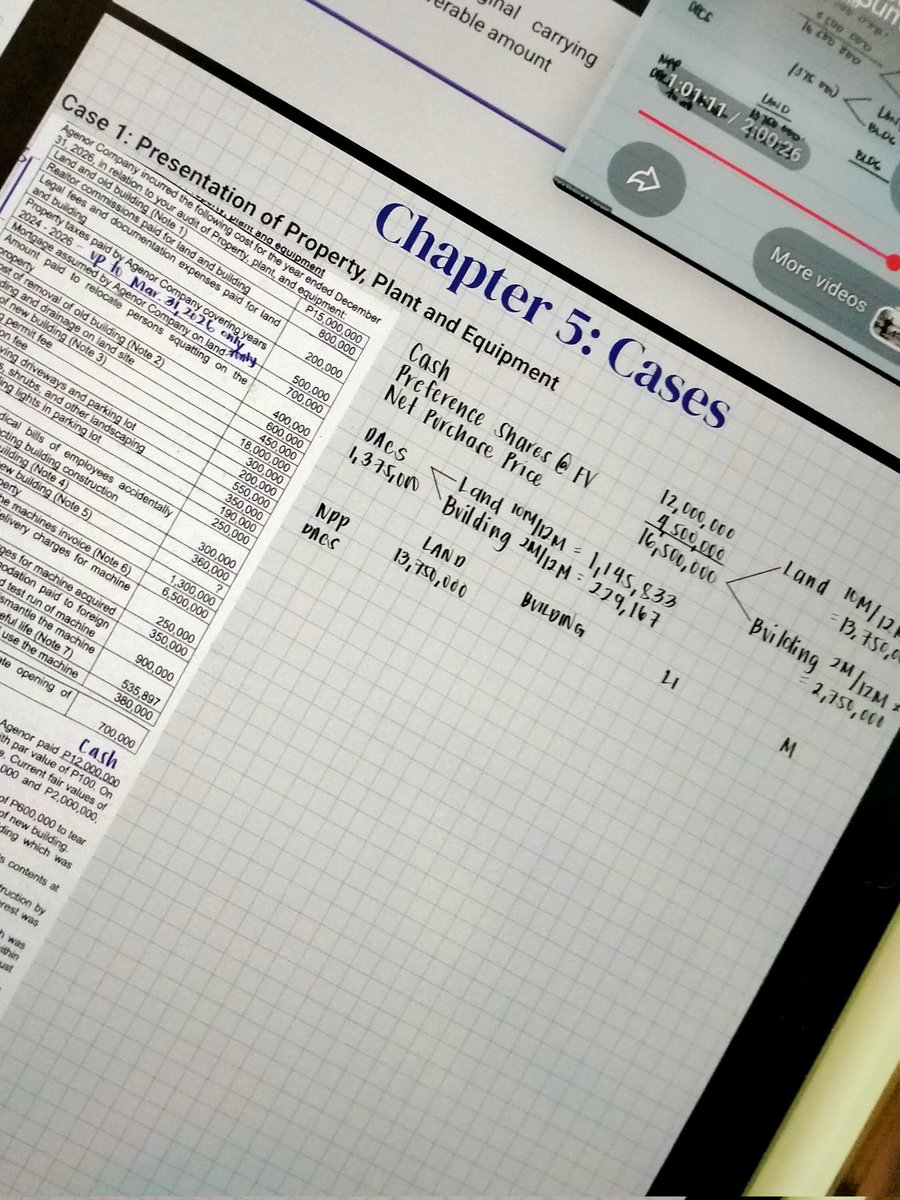 ginal carrying
verable amount
DACS
16,500,000
(1,375,000)
LAND
BLDG
NPP
DACS
LAND
BLDG
1:01:11 / 2:00:26
More videos
Chapter 5: Cases
Case 1: Presentation of Property, Plant and Equipment
Agenor Company incurred the following cost for the year ended December
31, 2026, in relation to your audit of Property, plant, and equipment:
Land and old building (Note 1) P15,000,000
Realtor commissions paid for land and building 800,000
Legal fees and documentation expenses paid for land
and building 200,000
Property taxes paid by Agenor Company covering years
2024 - 2026 - up to Mar. 31, 2026 only 500,000
Mortgage assumed by Agenor Company on land 700,000
Amount paid to relocate persons squatting on the
property 400,000
ost of removal of old building (Note 2) 600,000
ding and drainage on land site 450,000
of new building (Note 3) 18,000,000
permit fee 300,000
on fee 200,000
ving driveways and parking lot 550,000
s, shrubs, and other landscaping 350,000
ing lights in parking lot 190,000
250,000
dical bills of employees accidentally
cting building construction 300,000
uilding (Note 4) 360,000
ew building (Note 5) ?
perty 1,300,000
he machines invoice (Note 6) 6,500,000
elivery charges for machine
250,000
ges for machine acquired 350,000
modation paid to foreign
d test run of machine 900,000
smantle the machine
eful life (Note 7) 535,897
use the machine 380,000
ate opening of
700,000
Cash
Agenor paid P12,000,000
ith par value of P100. On
e. Current fair values of
000 and P2,000,000.
of P600,000 to tear
of new building.
ding which was
s contents at
truction by
erest was
h was
within
ust
Cash 12,000,000
Preference Shares @ FV 4,500,000
Net Purchase Price 16,500,000
Land 10M/12M
= 13,750,00
Building 2M/12M x
= 2,750,000
DACS
1,375,000
Land 10M/12M = 1,145,833
Building 2M/12M = 229,167
LAND BUILDING LI M
NPP 13,750,000
DACS